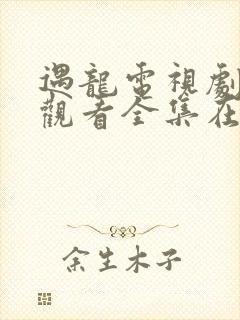 遇龍電視劇
觀看全集在
余生木子